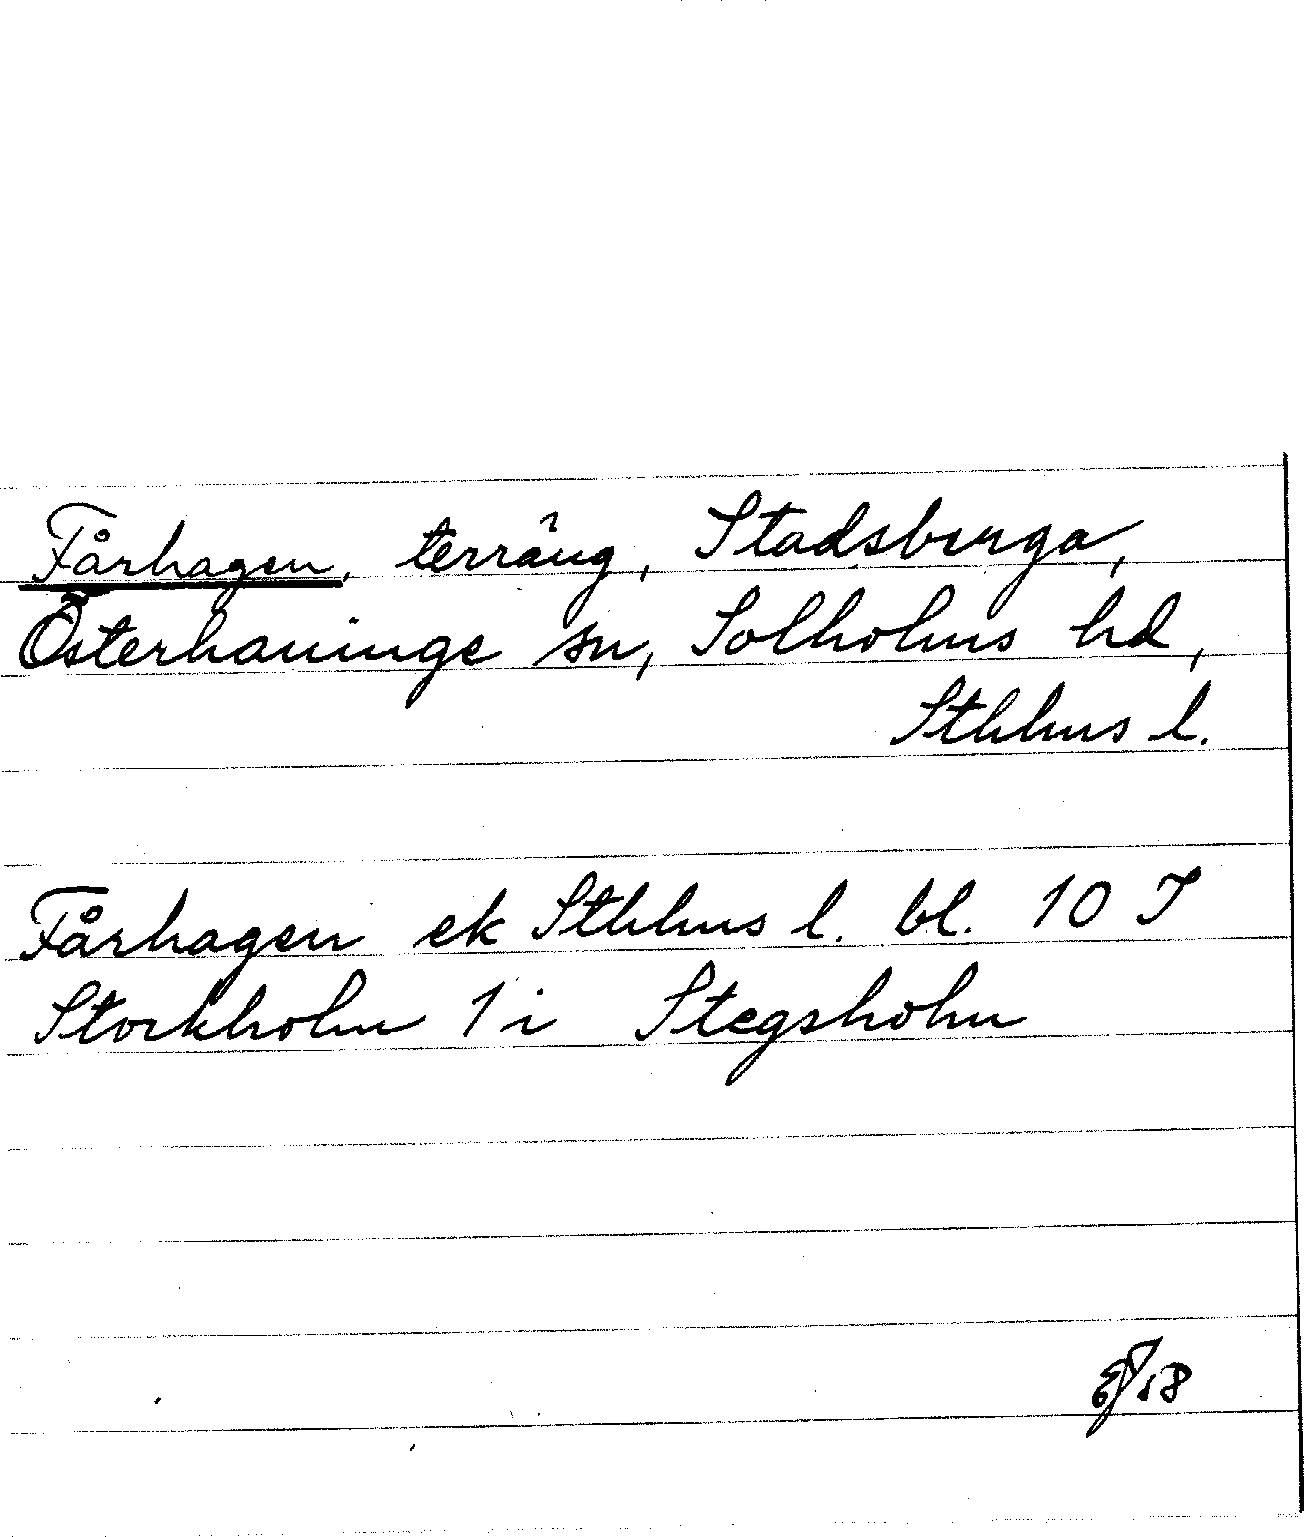 Fårhagen, terräng, Stadsberga,
Österhaninge sn, Solholms hd,
Sthlms l.
Fårhagen ek Sthlms l. bl. 10 I
Stockholm 1 i Stegsholm
58